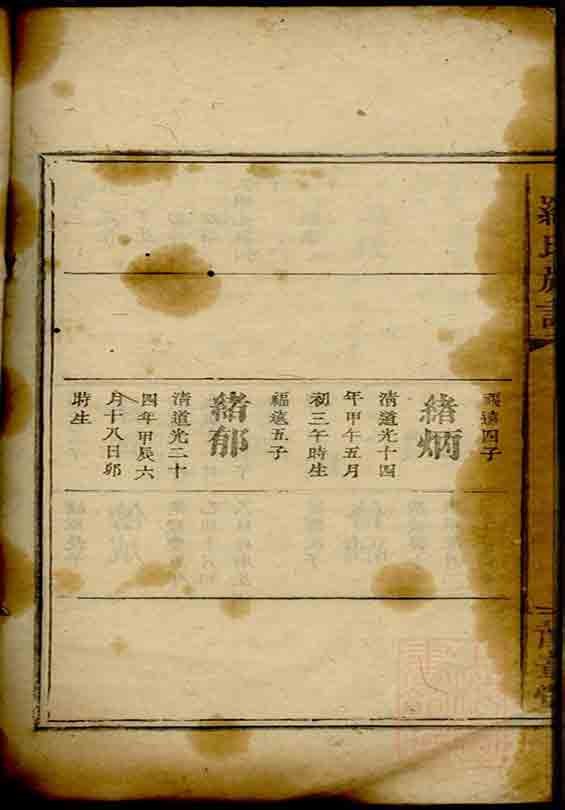 羅氏族譜
福遠四子
緒炳
清道光十四
年甲午五月
初三午時生
福遠五子
緒郁
清道光二十
四年甲辰六
月十八日卯
時生